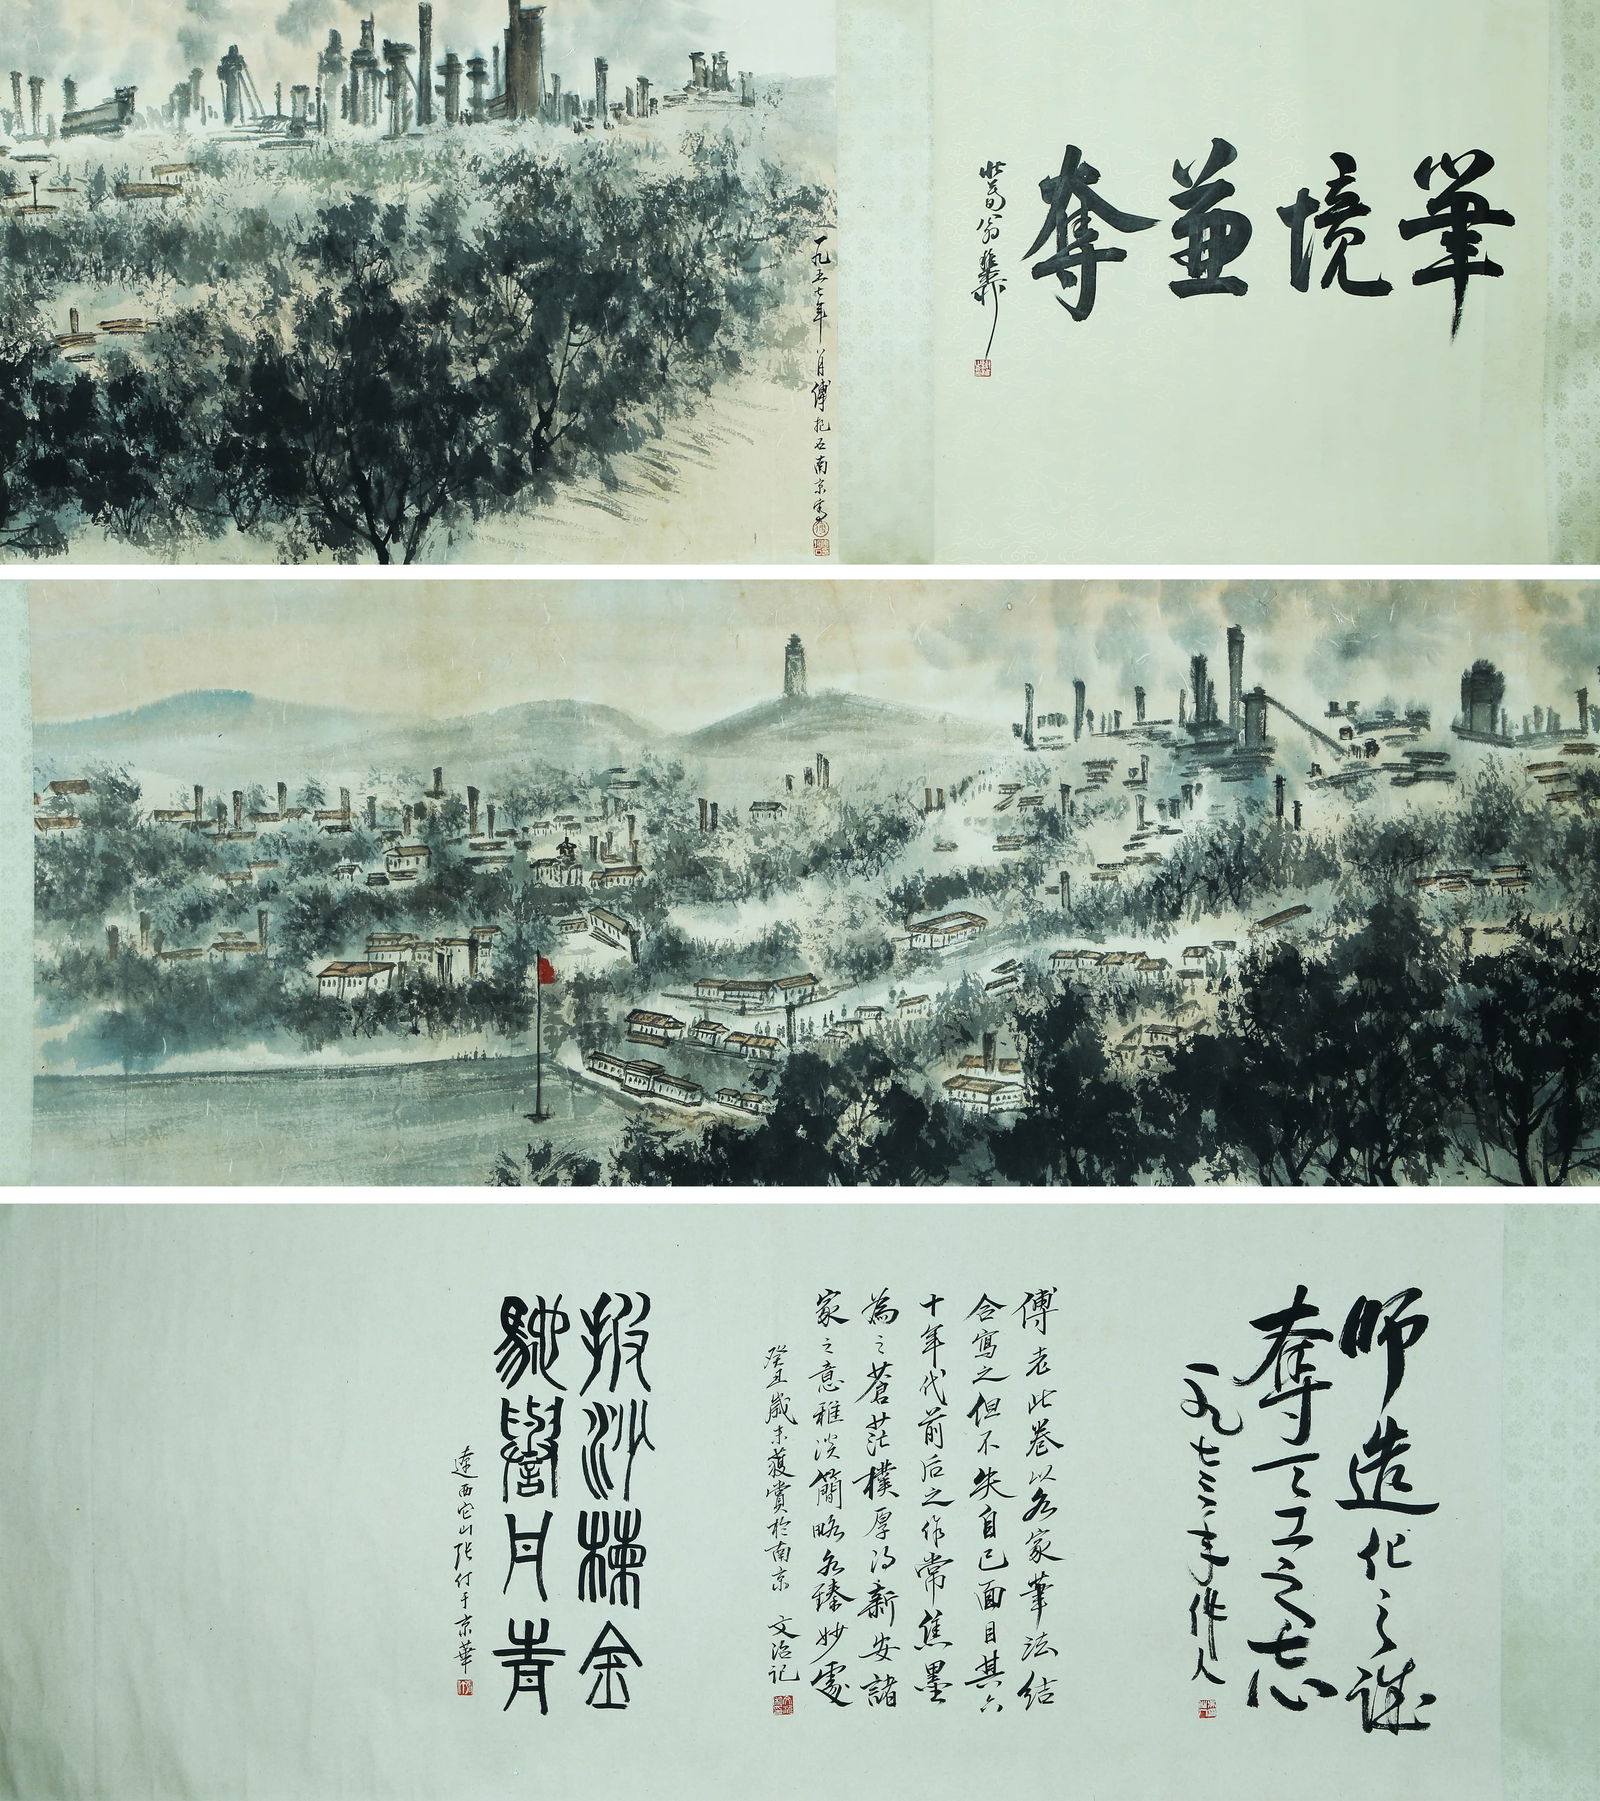 筆境兼奪
一九五七年
月傅抱石南京寫
師造化之
奪天工之志
一九七三年作人
傅老此卷以各家筆法結
合寫之但不失自己面目其六
十年代前后之作常焦墨
為之蒼茫樸厚得新安諸
家之意雅淡簡略各臻妙處
癸丑歲末獲賞於南京 文治記
披沙揀金
馳譽丹青
遼西它山張仃于京華